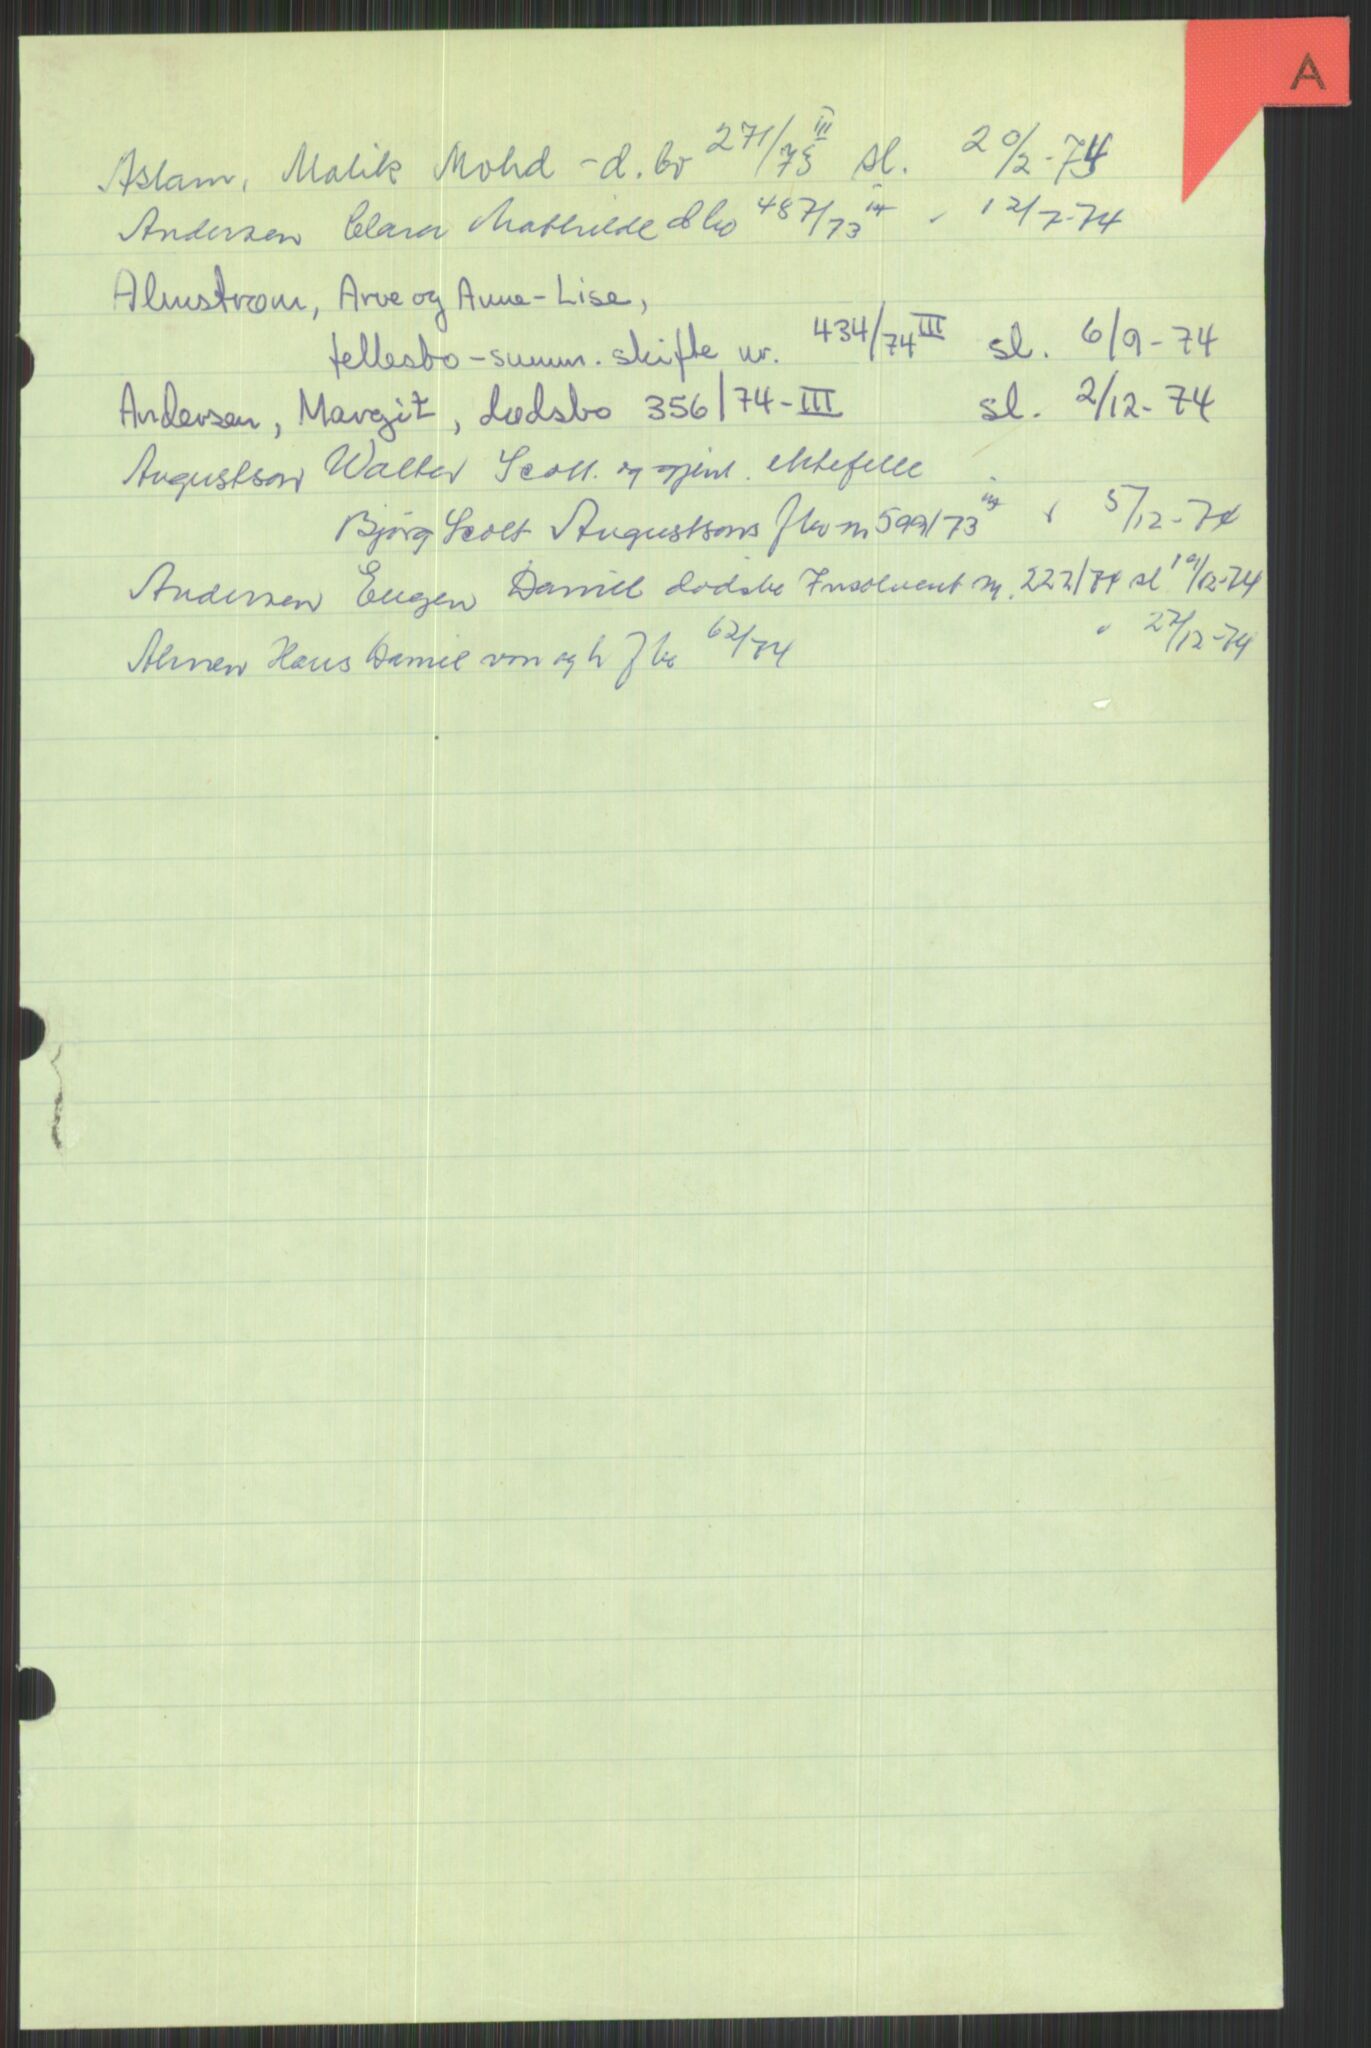 A
Aslam, Malik Mohd - d.bo 271/73 III sl. 20/2-74
Andersen Clara Mathilde dbo 487/73 12/7-74
Almstrøm, Arve og Anne-Lise,
fellesbo - summ. skifte nr. 434/74 III sl. 6/9-74
Andersen, Margit, dødsbo 356/74-III sl. 2/12-74
Augustson Walter Scott og gjenl. ektefelle
Bjørg Scott Augustsons fbo nr 599/73 5/12-74
Andersen Eugen Daniel dødsbo Insolvent nr. 222/74 sl 19/12-74
Hans Daniel von og h fbo 62/74 " 27/12-74